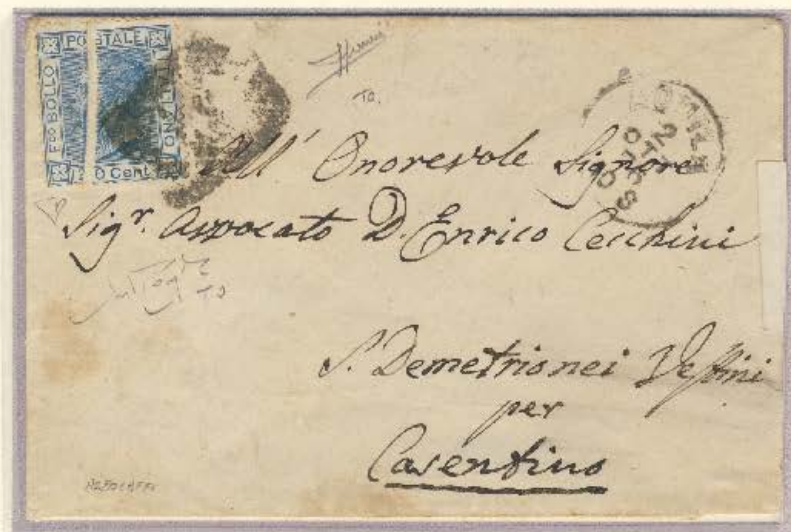 POSTALE
F.co BOLLO
ITALIANO
20 Cent
All' Onorevole Signore
Sigr. Avvocato D. Enrico Cecchini
TO.
TO
S. Demetrio nei Vestini
per
Casentino